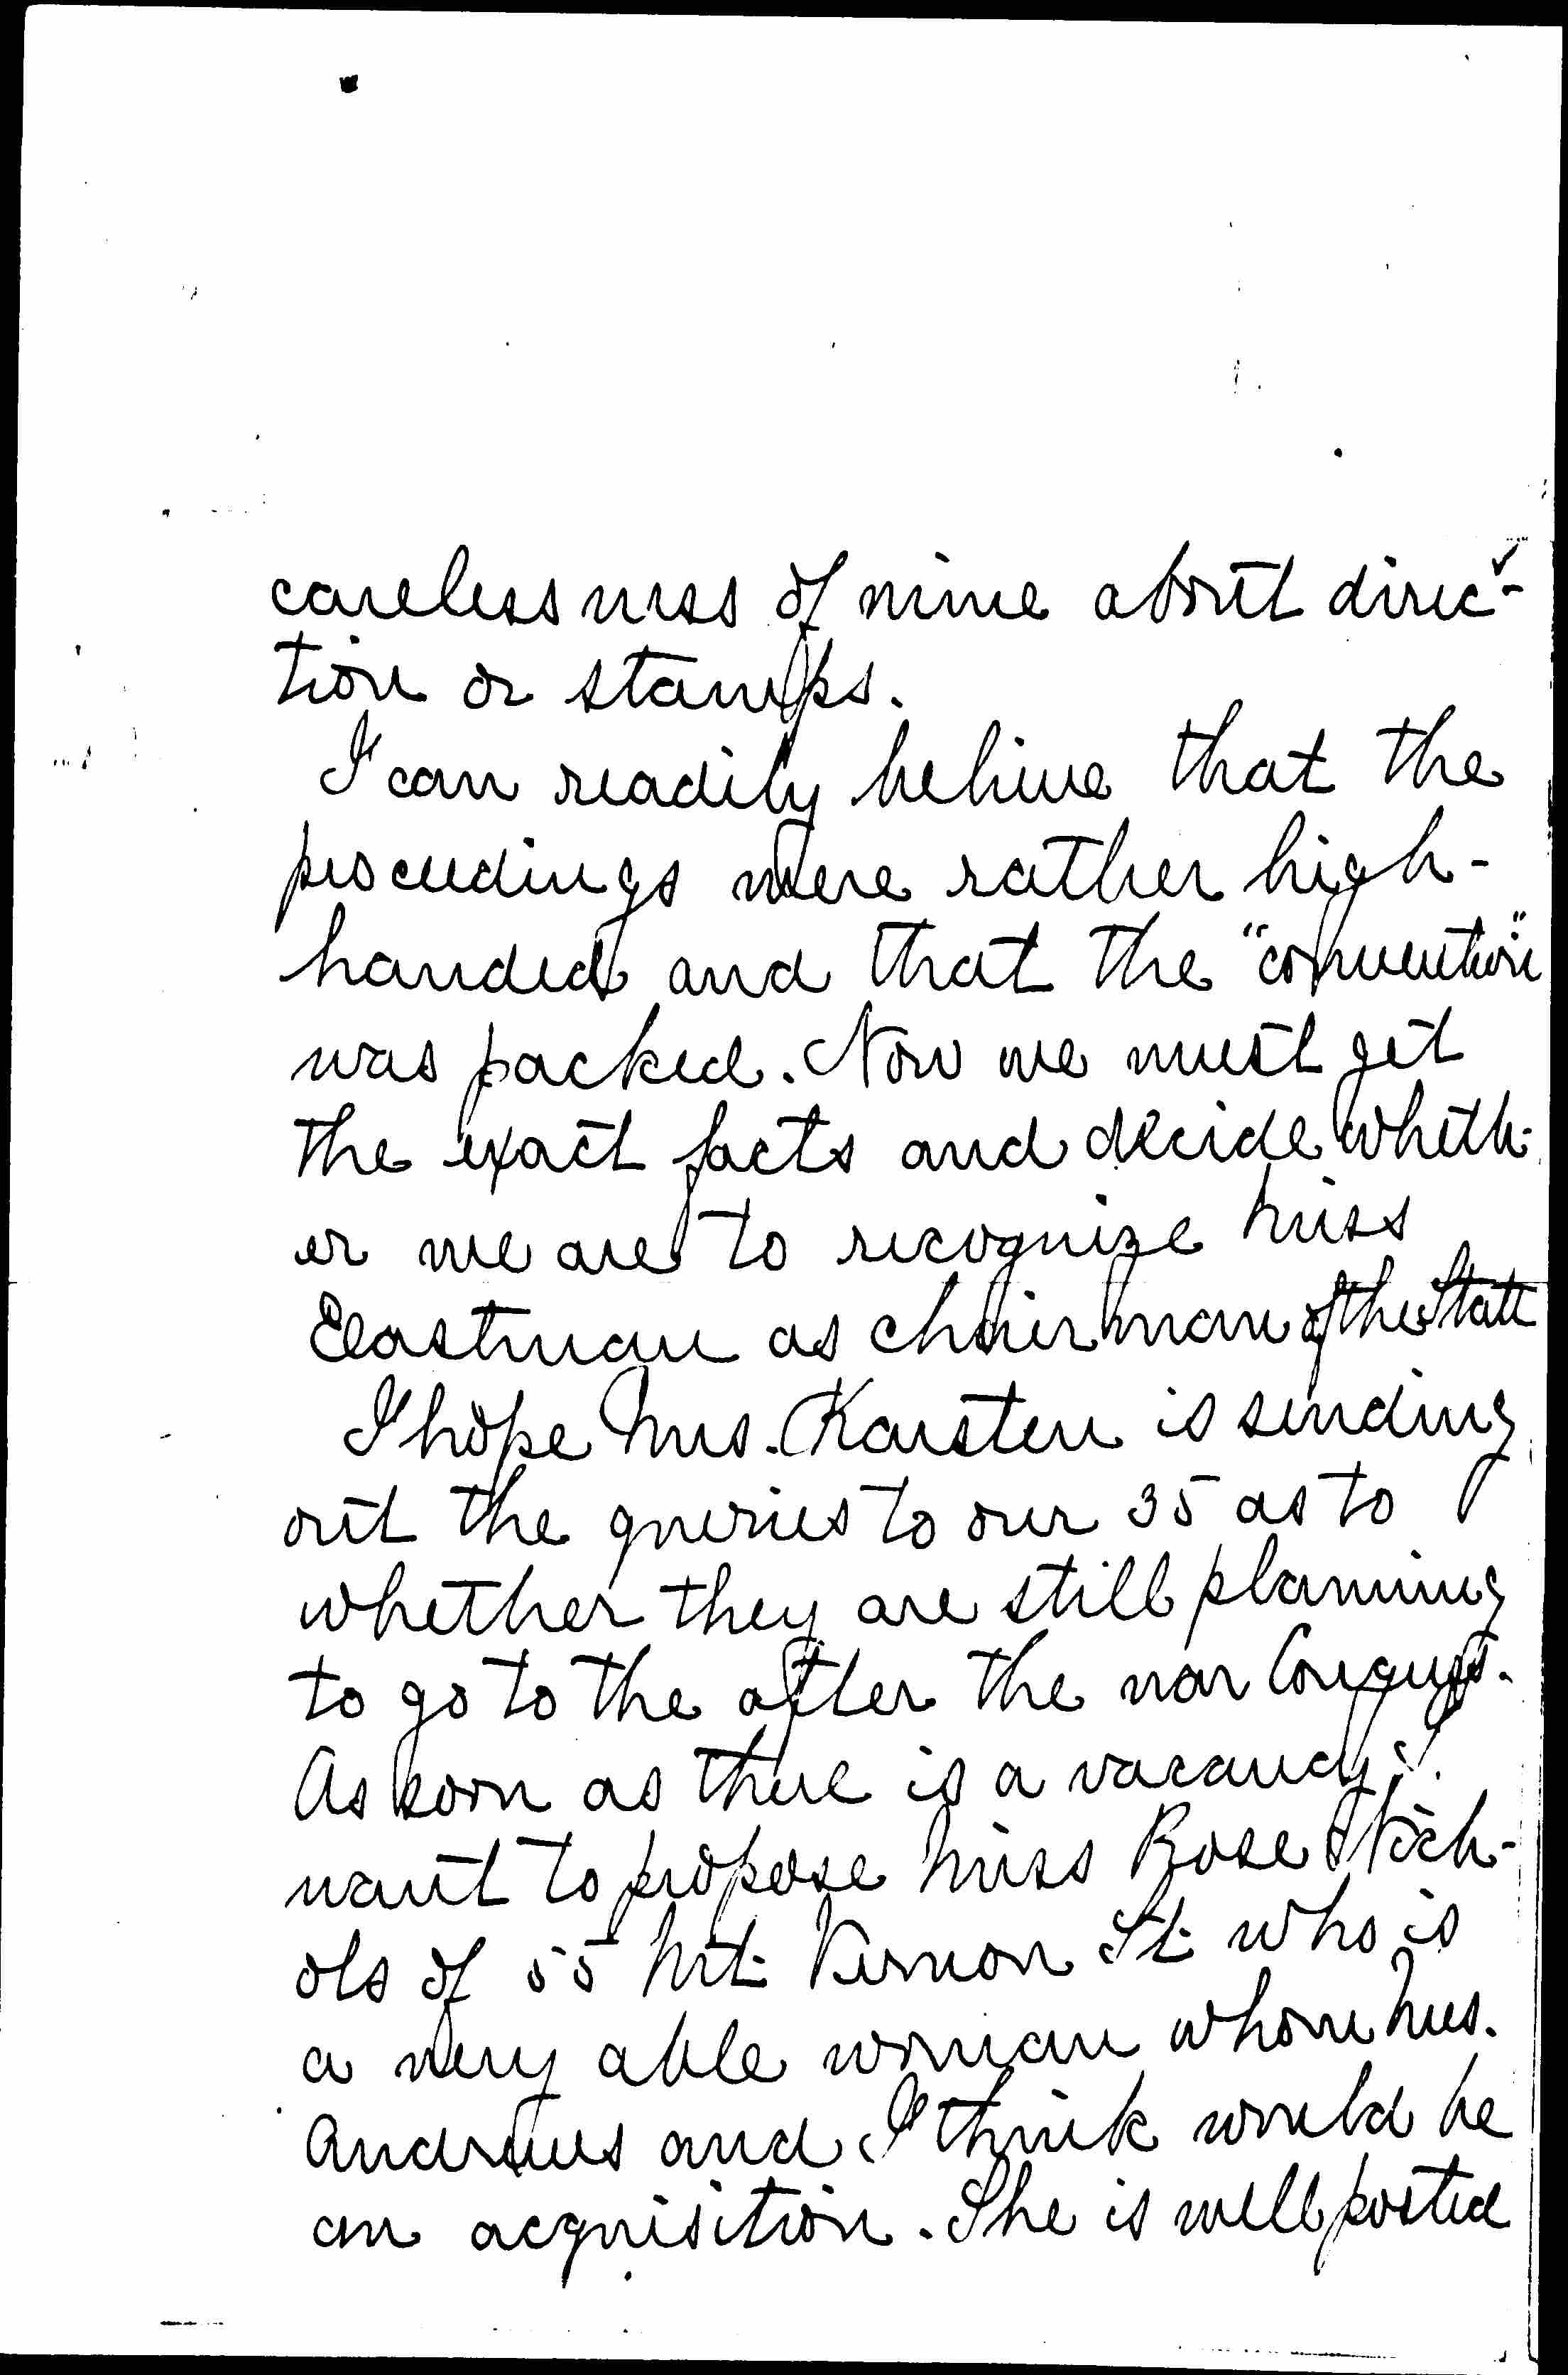 carelessness of mine about direc-
tion or stamps.
I can readily believe that the
proceedings were rather high-
handed and that the "convention"
was packed. Now we must get
the exact facts and decide wheth-
er we are to recognize Miss
Eastman as chairman of the State
I hope Mrs. Karsten is sending
out the queries to our 35 as to
whether they are still planning
to go to the after the war Congress.
As soon as there is a vacancy I
want to propose Miss Rose Nich-
ols of 55 Mt. Vernon St. who is
a very able woman whom Mrs.
Andrews and I think would be
an acquisition. She is well posted